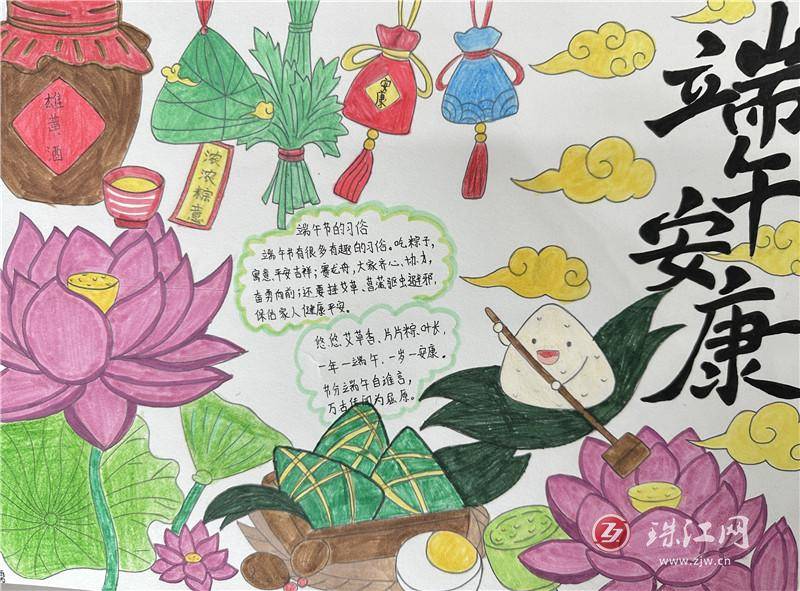 端午安康
雄黄酒
浓浓粽意
安康
端午节的习俗
端午节有很多有趣的习俗。吃粽子,
寓意平安吉祥；赛龙舟,大家齐心、协力,
奋勇向前；还要挂艾草、菖蒲驱虫避邪,
保佑家人健康平安。
悠悠艾草香、片片粽叶长、
一年一端午、一岁一安康。
节分端午自谁言,
万古传闻为屈原。
珠江网
www.zjw.cn